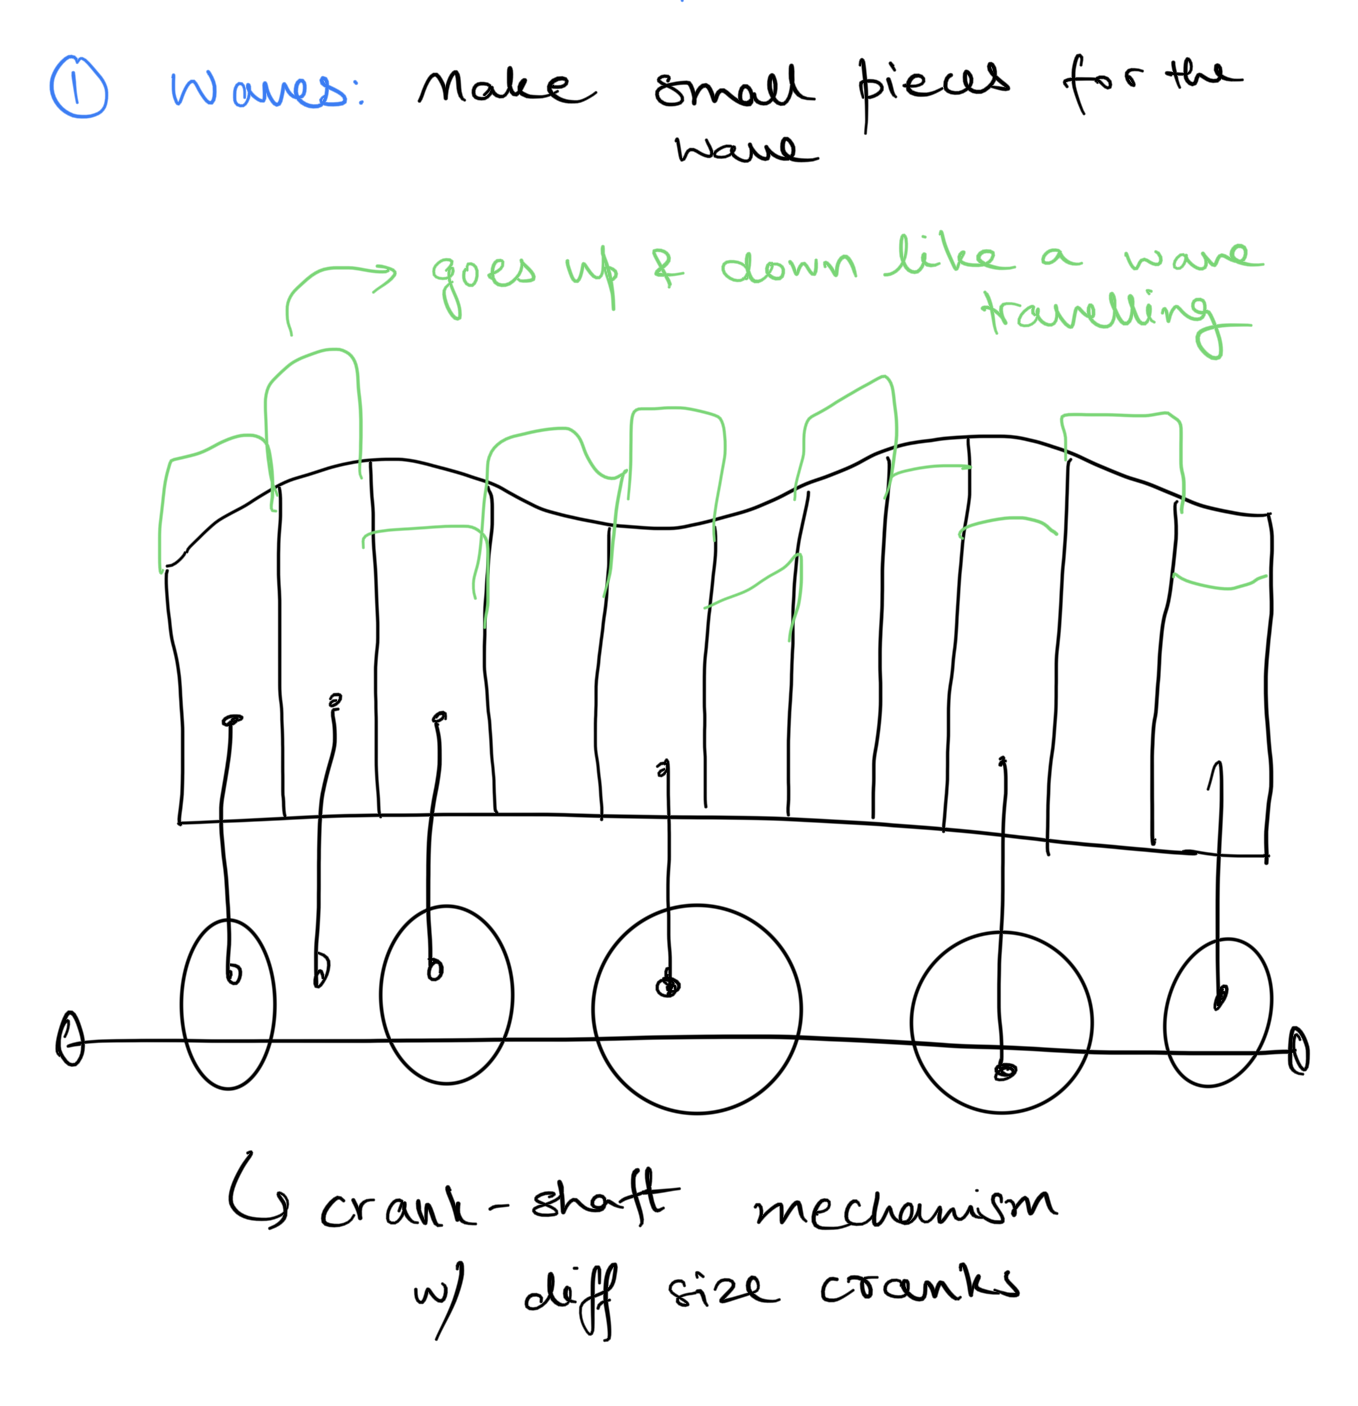 ① Waves: Make small pieces for the
wave
goes up & down like a wave
travelling
crank-shaft mechanism
w/ diff size cranks